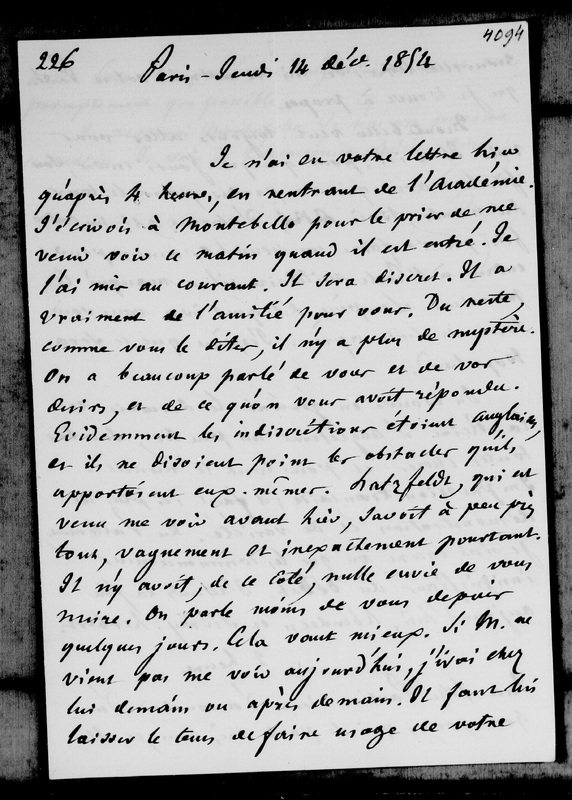 4094
226
Paris - Jeudi 14 déc. 1854
Je n'ai eu votre lettre hier
qu'après 4 heures, en rentrant de l'Académie.
J'écrivois à Montebello pour le prier de me
venir voir ce matin quand il est entré. Je
l'ai mis au courant. Il sera discret. Il a
vraiment de l'amitié pour vous. Du reste,
comme vous le dites, il n'y a plus de mystère.
On a beaucoup parlé de vous et de vos
desirs, et de ce qu'on vous avoit répondu.
Evidemment les indiscrétions étoient anglaises,
et ils ne disoient point les obstacles qu'ils
apportoient eux-mêmes. Hatzfeldt, qui est
venu me voir avant hier, savoit à peu près
tout, vaguement et inexactement pourtant.
Il n'y avoit, de ce côté, nulle envie de vous
nuire. On parle moins de vous depuis
quelques jours. Cela vaut mieux. Si M. ne
vient pas me voir aujourd'hui, j'irai chez
lui demain ou après demain. Il faut lui
laisser le tems de faire usage de votre